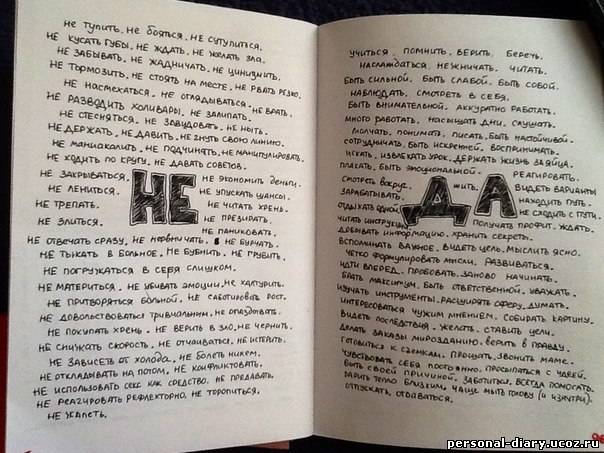 не тупить, не бояться, не сутулиться.
не кусать губы, не ждать, не желать зла.
не забывать, не жадничать, не цинизмить,
не тормозить, не стоять на месте, не рвать резко,
не насмехаться, не оглядываться, не врать,
не разводить холивары, не залипать,
не стесняться, не завидовать, не ныть,
не держать, не давить, не гнуть свою линию,
не маниакалить, не подчинять, не манипулировать,
не ходить по кругу, не давать советов.
не закрываться.
не экономить деньги.
не лениться.
не упускать шансы.
НЕ
не трепать.
не читать хрень.
не презирать.
не злиться.
не паниковать.
не отвечать сразу, не нервничать, не бурчать.
не тыкать в больное, не бубнить, не грубить,
не погружаться в себя слишком.
не материться, не убивать эмоции, не халтурить.
не притворяться больной, не саботировать рост.
не довольствоваться тривиальным, не опаздывать.
не покупать хрень, не верить в зло, не чернить.
не снижать скорость, не отчаиваться, не истерить.
не зависеть от холода, не болеть никем.
не откладывать на потом, не конфликтовать.
не использовать секс как средство, не предавать.
не реагировать рефлекторно, не торопиться.
не жалеть.
учиться, помнить, верить, беречь.
наслаждаться, нежничать, читать.
быть сильной, быть слабой, быть собой.
наблюдать, смотреть в себя.
быть внимательной, аккуратно работать.
много работать, насыщать дни, слушать.
молчать, понимать, писать, быть настойчивой.
сотрудничать, быть искренней, воспринимать.
искать, извлекать урок, держать жизнь за яйца.
плакать, быть эмоциональной.
реагировать.
смотреть вокруг.
жить.
видеть варианты
зарабатывать.
находить путь.
ДА
не сходить с пути.
отдыхать одной
получать профит, ждать.
читать инструкции
добывать информацию, хранить секреты.
вспоминать важное, видеть цель, мыслить ясно.
четко формулировать мысли, развиваться.
идти вперед, пробовать, заново начинать.
брать максимум, быть ответственной, уважать.
изучать инструменты, расширять сферу, думать.
интересоваться чужим мнением, собирать картину.
видеть последствия, желать, ставить цели.
делать заказы мирозданию, верить в правду.
готовиться к съемкам, прощать, звонить маме.
чувствовать себя постоянно, просыпаться с идеей.
быть своей причиной, заботиться, всегда помогать.
дарить тепло близким, чаще мыть голову (и изнутри).
отпускать, отдаваться.
personal-diary.ucoz.ru